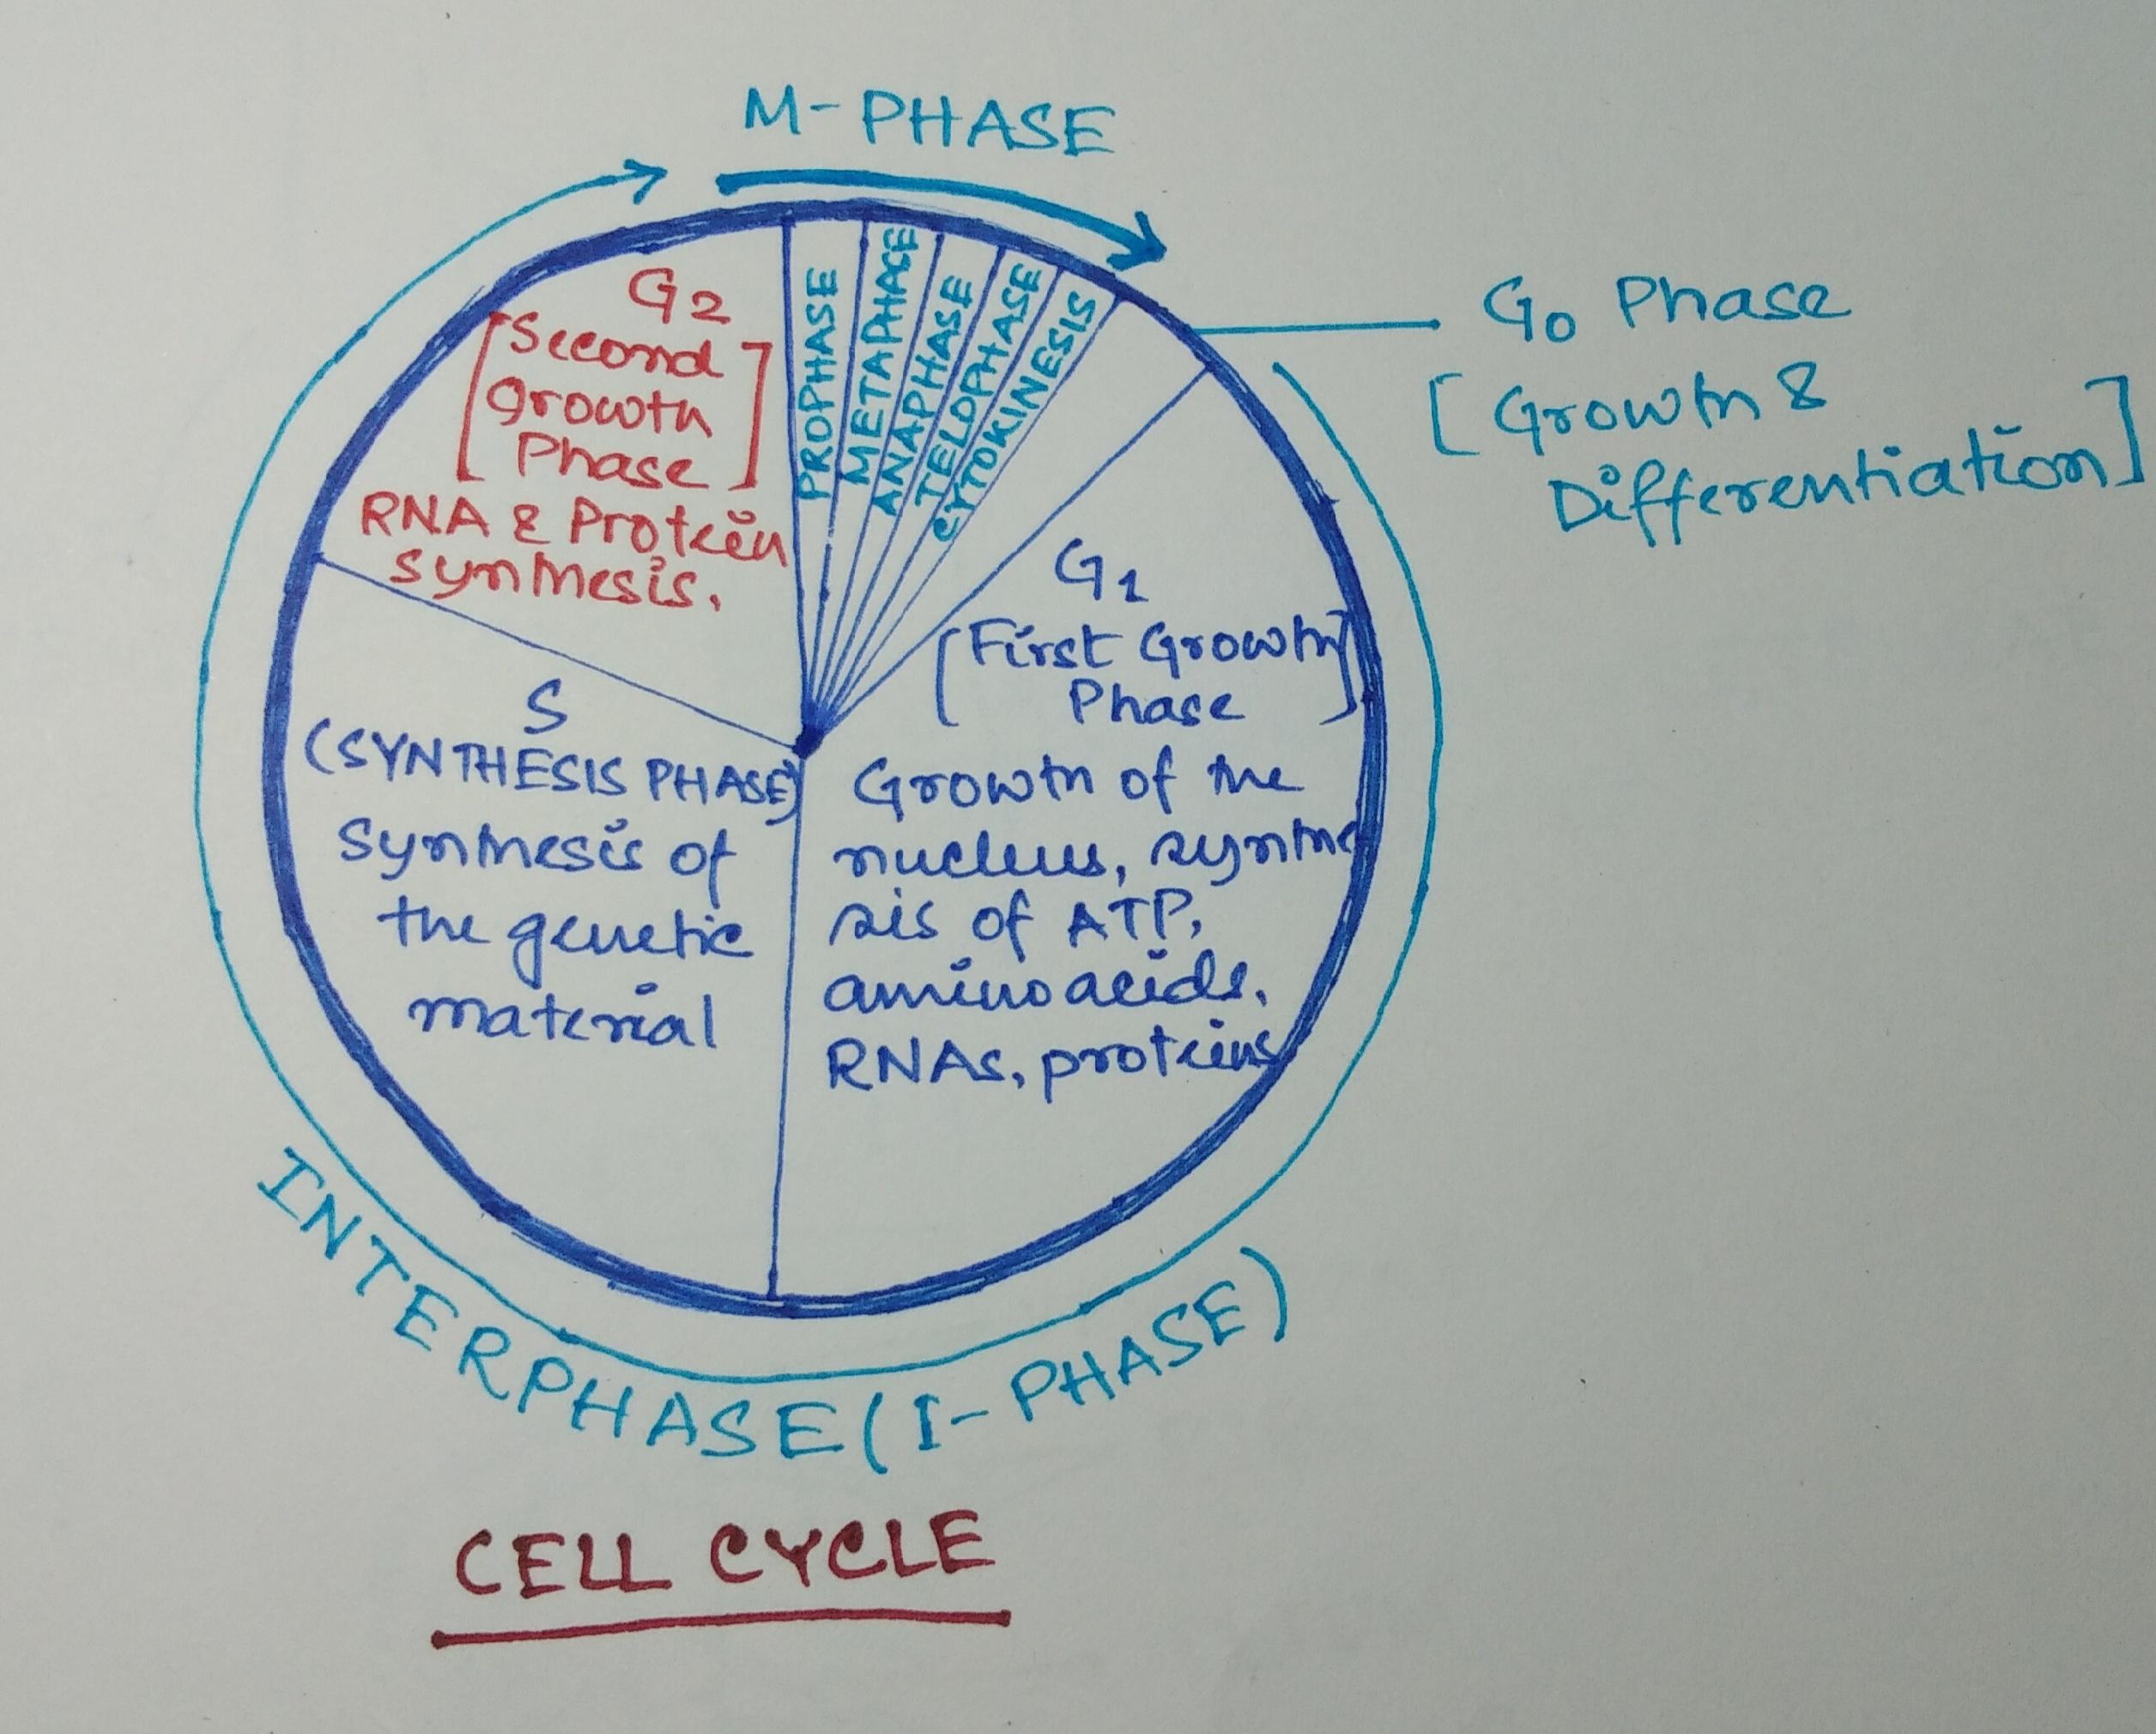 M-PHASE
G2
[Second
growth
Phase]
RNA & Protein
synthesis.
PROPHASE
METAPHASE
ANAPHASE
TELOPHASE
CYTOKINESIS
G0 Phase
[Growth &
Differentiation]
G1
[First Growth
Phase]
Growth of the
nucleus, synthe
sis of ATP,
amino acids,
RNAs, proteins
S
(SYNTHESIS PHASE)
Synthesis of
the genetic
material
INTERPHASE (I-PHASE)
CELL CYCLE